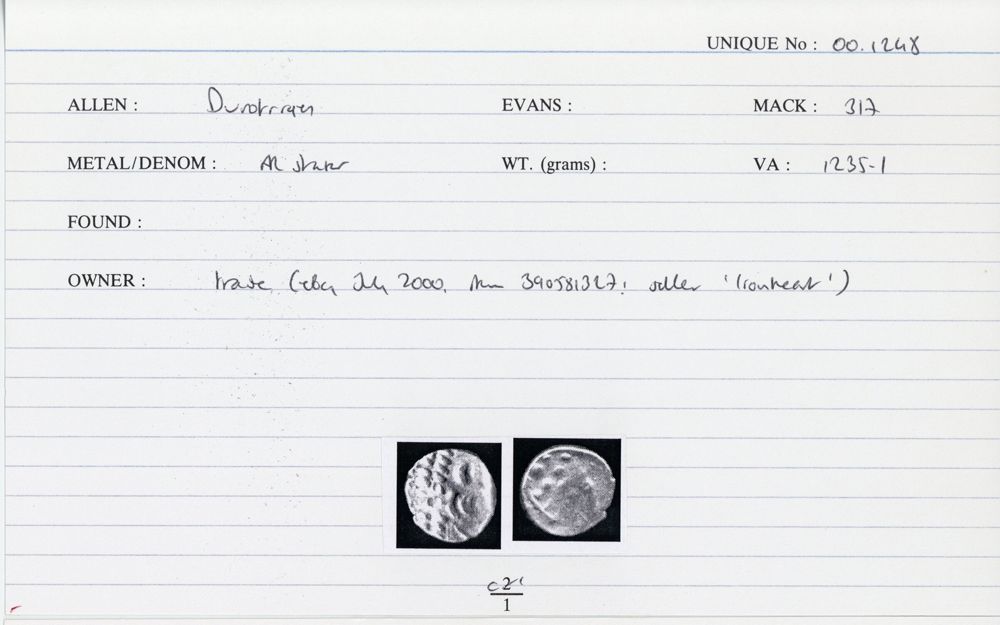 UNIQUE No : 00.1248
ALLEN : Durotrigan EVANS : MACK : 317
METAL/DENOM : AR stater WT. (grams) : VA : 1235-1
FOUND :
OWNER : trade (eBay July 2000, item 390581327; seller 'Ironheart')
1